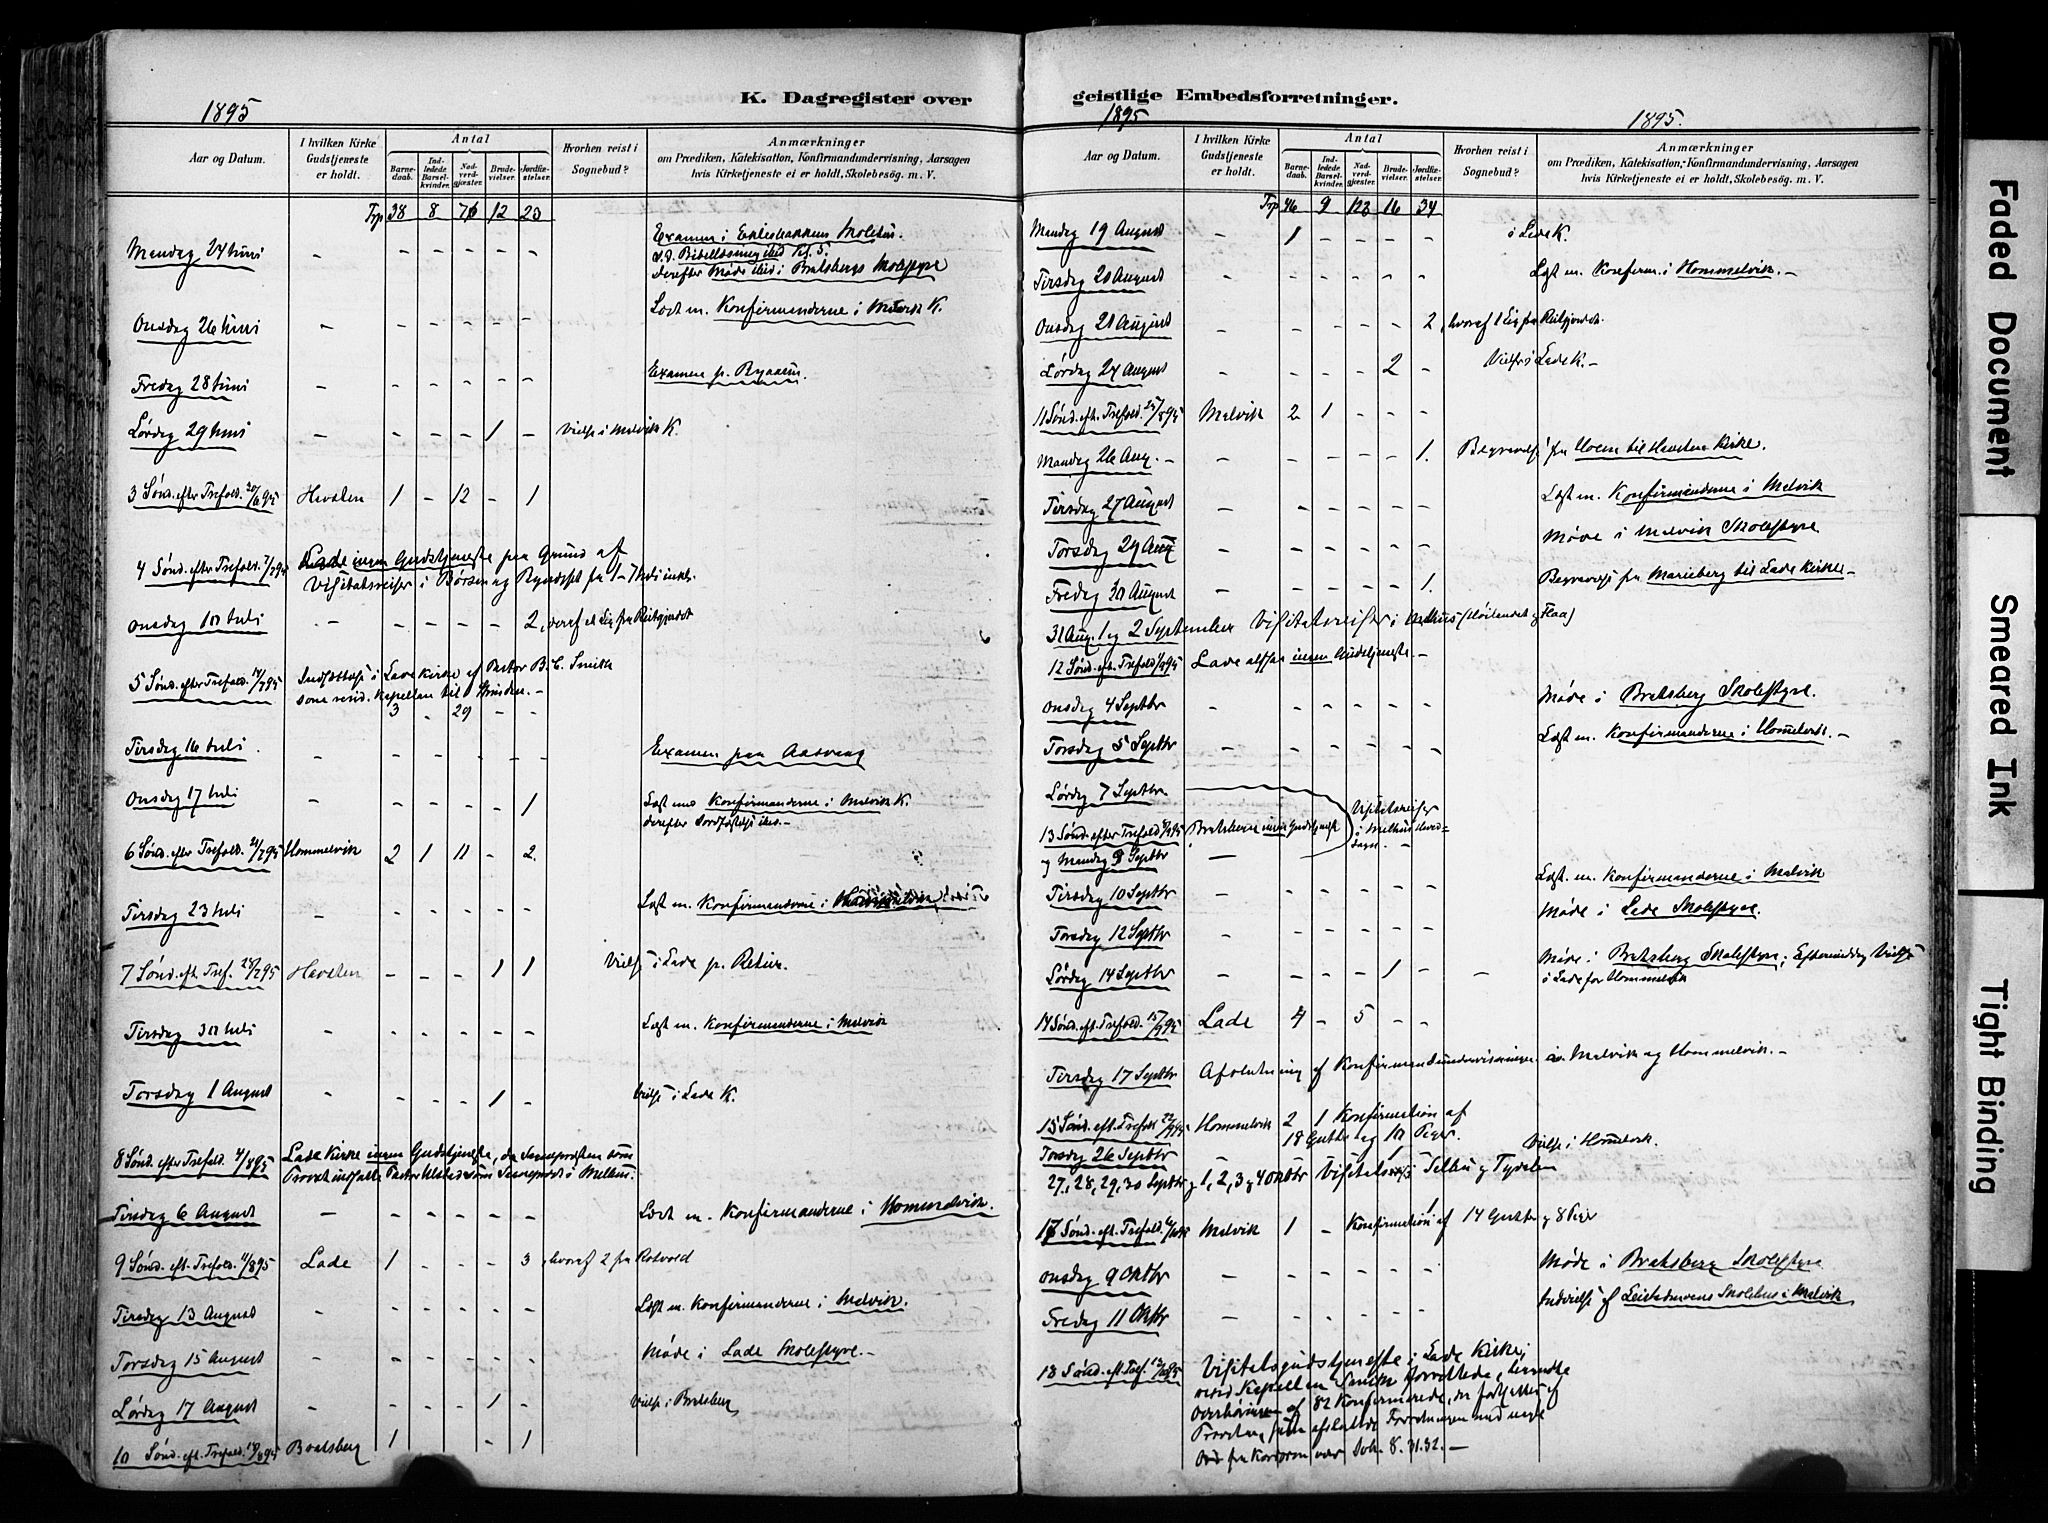 K. Dagregister over
1895
Aar og Datum.
I hvilken Kirke Gudstjeneste er holdt.
Antal
Barnedaab.
Indledede Barselkvinder.
Nadverdgjester.
Brudevielser.
Jordfæstelser.
Hvorhen reist i Sognebud?
Anmærkninger
om Prædiken, Katekisation, Konfirmandundervisning, Aarsagen
hvis Kirketjeneste ei er holdt, Skolebesøg. m. V.
Trp 38 8 76 12 20
Mandag 24 Juni - - - - - - Examen i
derefter Møde ibid i Bratsbergs Skolestyre
Onsdag 26 Juni - - - - - - Læst m. Konfirmanderne i Malvik K.
Fredag 28 Juni - - - - - - Examen p.
Lørdag 29 Juni - - - - 1 - Vielse i Malvik K.
3 Sønd. efter Trefold. 30/6 95 Havsten 1 - 12 - 1
4 Sønd. efter Trefold. 7/7 95 Lade ingen Gudstjeneste paa Grund af
Visitatsreiser i Børsen og Bynesset fra 1-7 Juli inkl.
Onsdag 10 Juli - - - - - 2, deraf et Lig fra Reitgjerdet
5 Sønd. efter Trefold. 14/7 95 Indsættelse i Lade Kirke af Pastor B. C. Smith
som resid. Kapellan til Strinden. -
3 - 29 - -
Tirsdag 16 Juli - - - - - - Examen paa Aasvang
Onsdag 17 Juli - - - - - 1 Læst med Konfirmanderne i Malvik K.
derefter Jordfæstelse ibid. -
6 Sønd. efter Trefold. 21/7 95 Hommelvik 2 1 11 - 2
Tirsdag 23 Juli - - - - - - Læst m. Konfirmanderne i
7 Sønd. eft. Tref. 28/7 95 Havsten - - - 1 1 Vielse i Lade p.
Tirsdag 30 Juli - - - - - - Læst m. Konfirmanderne i Malvik
Torsdag 1 August - - - - 1 - Vielse i Lade K.
8 Sønd. efter Trefold. 4/8 95 Lade Kirke ingen Gudstjeneste, da Sognepresten som
Provst indsatte Pastor Ulstad som Sogneprest i Melhus.
Tirsdag 6 August - - - - - - Læst m. Konfirmanderne i Hommelvik.
9 Sønd. eft. Trefold. 11/8 95 Lade 1 - - - 3, hvoraf 2 fra Rotvold
Tirsdag 13 August - - - - - - Læst m. Konfirmanderne i Malvik.
Torsdag 15 August - - - - - - Møde i Lade Skolestyre. -
Lørdag 17 August - - - - 1 - Vielse i Bratsberg
10 Sønd. eft. Trefold. 18/8 95 Bratsberg 1 - 1
geistlige Embedsforretninger.
1895 1895.
Aar og Datum.
I hvilken Kirke Gudstjeneste er holdt.
Antal
Barnedaab.
Indledede Barselkvinder.
Nadverdgjester.
Brudevielser.
Jordfæstelser.
Hvorhen reist i Sognebud?
Anmærkninger
om Prædiken, Katekisation, Konfirmandundervisning, Aarsagen
hvis Kirketjeneste ei er holdt, Skolebesøg. m. V.
Trp 46 9 123 16 34
Mandag 19 August - 1 - - - - i Lade K.
Tirsdag 20 August - - - - - - Læst m. Konfirm. i Hommelvik. -
Onsdag 21 August - - - - - 2, hvoraf 1 Lig fra Reitgjerdet.
Lørdag 24 August - - - - 2 - Vielse i Lade K. -
11 Sønd. eft. Trefold. 25/8 95 Malvik 2 1 - - -
Mandag 26 Aug. - - - - - - 1. Begravelse fra Moen til Havsten Kirke.
Tirsdag 27 August - - - - - - Læst m. Konfirmanderne i Malvik
Torsdag 29 Aug - - - - - - Møde i Malvik Skolestyre
Fredag 30 August - - - - - 1. Begravelse fra Marieberg til Lade Kirke -
31 Aug. 1 og 2 September Visitatsreiser i Melhus (Høilandet og Flaa)
12 Sønd. eft. Trefold. 1/9 95 Lade altsaa ingen Gudstjeneste. -
Onsdag 4 Septbr - - - - - - Møde i Bratsberg Skolestyre.
Torsdag 5 Septbr - - - - - - Læst m. Konfirmanderne i Hommelvik. -
Lørdag 7 Septbr
13 Sønd. efter Trefold. 8/9 95 Bratsberg ingen Gudstjeneste
og Mandag 9 Septbr -
Visitatsreiser
i Melhus
Tirsdag 10 Septbr - - - - - - Læst. m. Konfirmanderne i Malvik
Torsdag 12 Septbr - - - - - - Møde i Lade Skolestyre.
Lørdag 14 Septbr - - - - 1 - - Møde i Bratsberg Skolestyre; Eftermiddag Vielse
i Lade for Hommelvik
14 Sønd. eft. Trefold. 15/9 95 Lade 4 - 5 - -
Tirsdag 17 Septbr Afslutning af Konfirmandundervisningen i Malvik og Hommelvik. -
15 Sønd. eft. Trefold. 22/9 95 Hommelvik 2 1 Konfirmation af
18 Gutter og 10 Piger.
Torsdag 26 Septbr - 1 Vielse i Hommelvik.
27, 28, 29, 30 Septbr og 1, 2, 3 og 4 Oktbr Visitatsreise i Selbu og Tydalen
17 Sønd. eft. Trefold. 6/10 95 Malvik 1 - Konfirmation af 14 Gutter og 8 Piger
Onsdag 9 Oktbr - - - - - - Møde i Bratsberg Skolestyre
Fredag 11 Oktbr - - - - - - Indvielse af Leistadmoens Skolehus i Malvik
18 Sønd. eft. Tref. 13/10 95 Visitatsgudstjeneste i Lade Kirke;
resid Kapellan Smith forrettede,
Overhøringen af 82 Konfirmerede, der fortsattes af
Provsten, som afsluttede Forretningen med
fra Kordøren over Joh. 8. 31. 32. -
Faded Document
Smeared Ink
Tight Binding